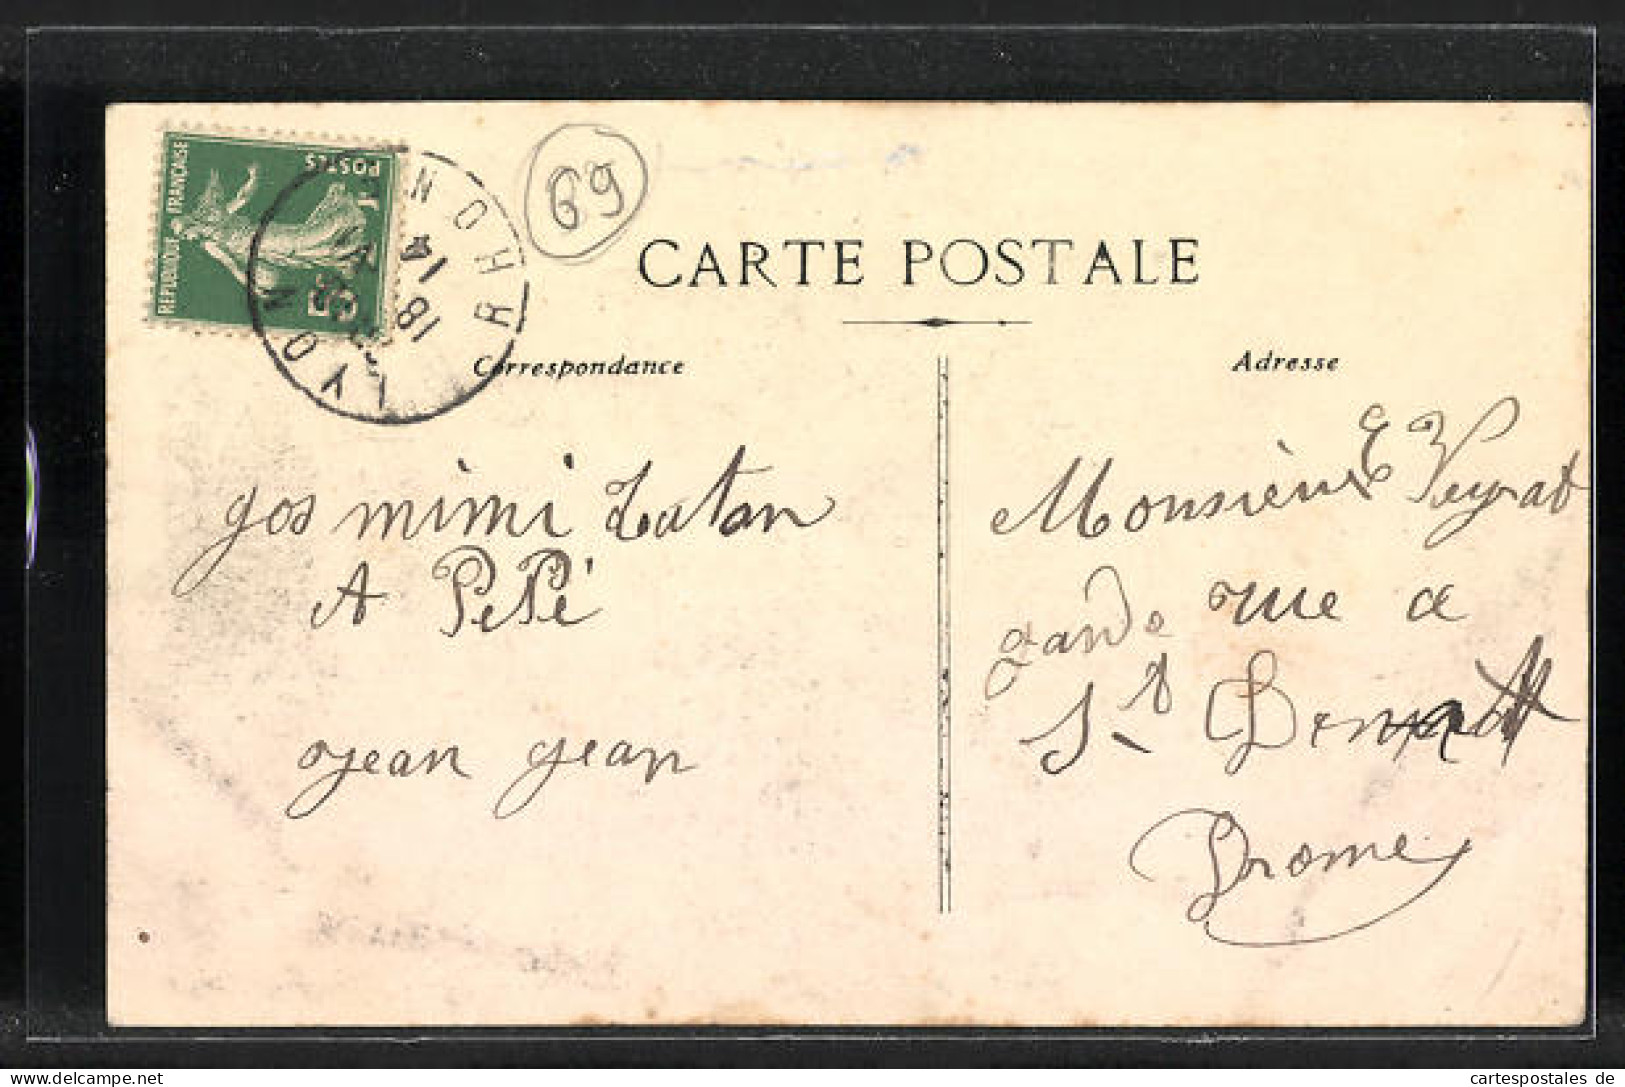 REPUBLIQUE FRANÇAISE
POSTES
5c
LYON RHONE
18
14
69
CARTE POSTALE
Correspondance
Adresse
gos mimi
A PePé
Jean Jean
Monsieur E Veyrat
grande rue a
St
Drome
cartespostales de